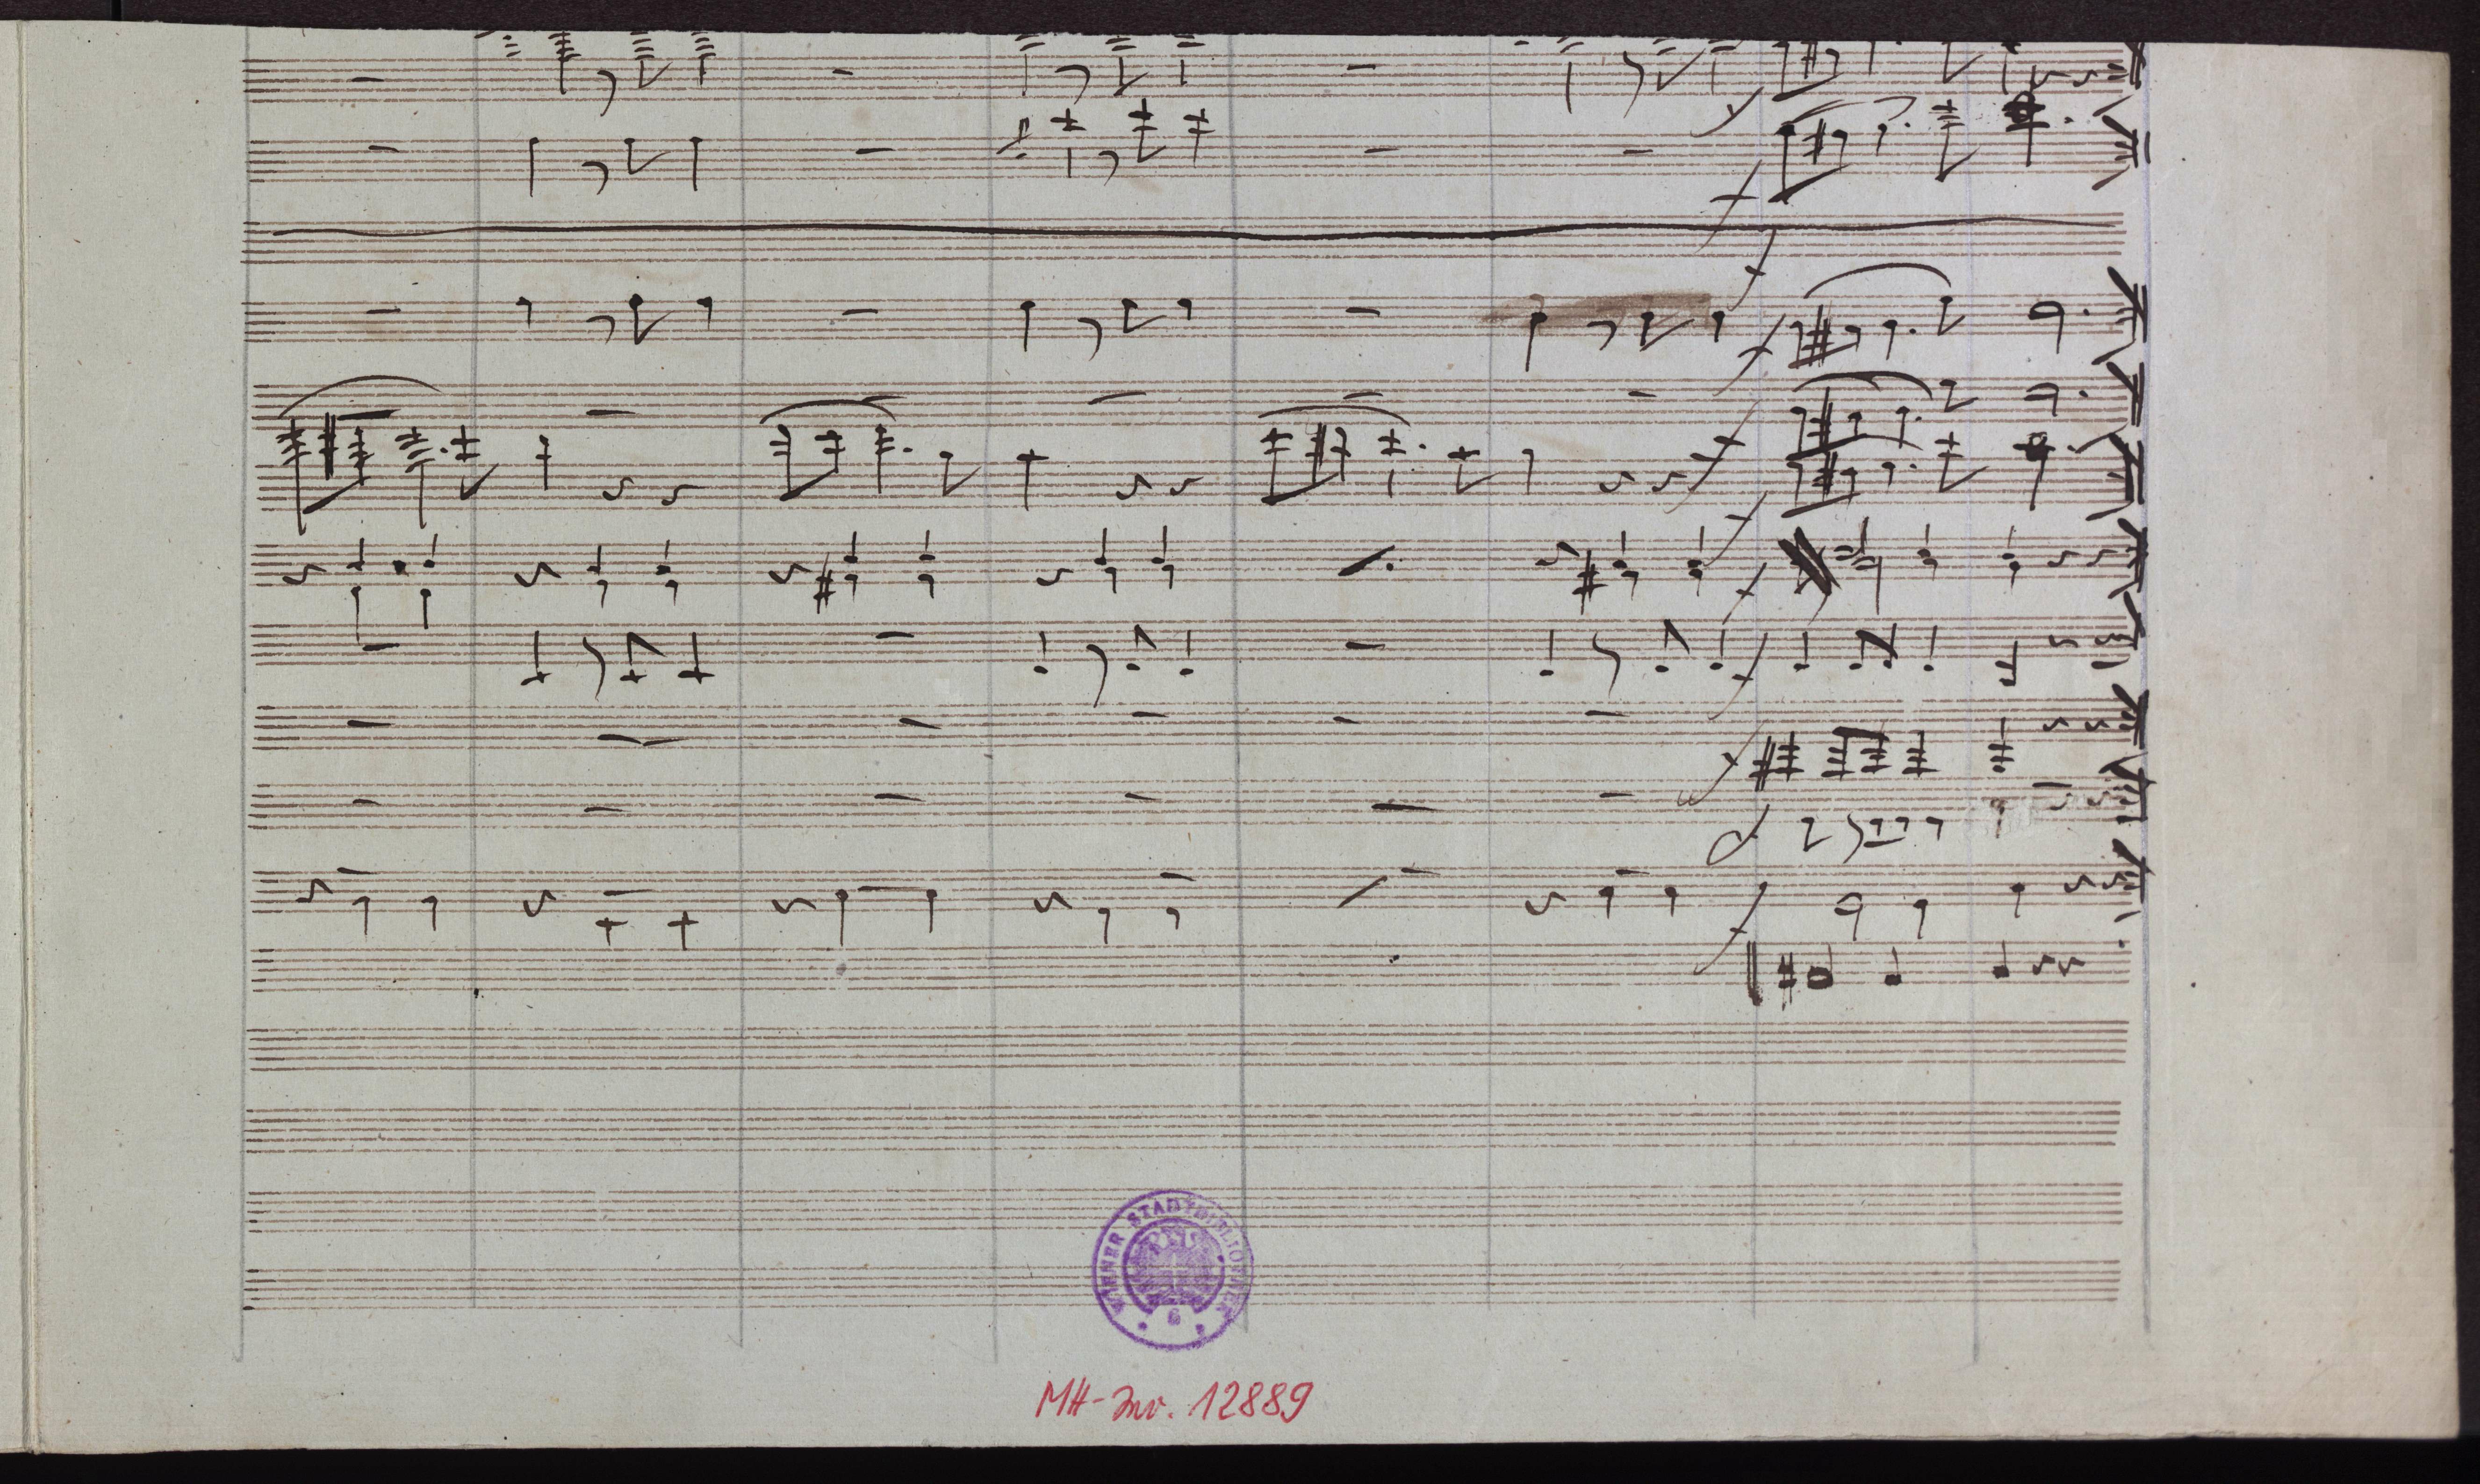 WIENER STADTBIBLIOTHEK
6
MH-Inv. 12889